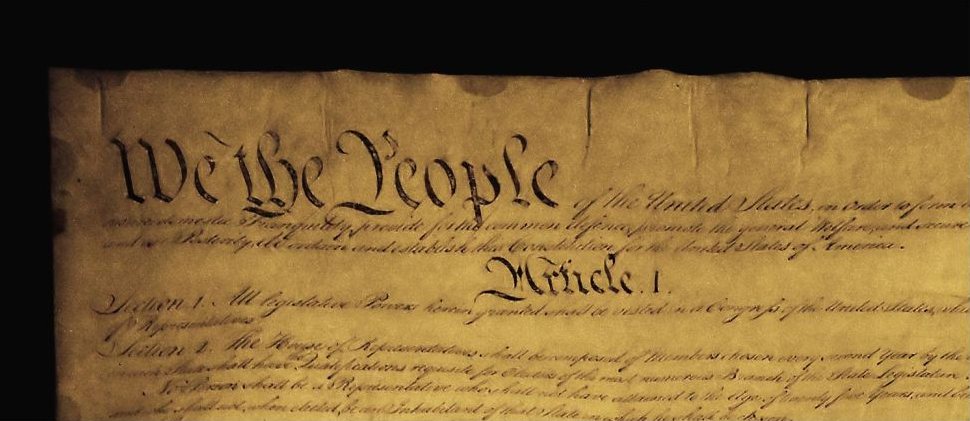 We the People of the United States, in Order to form
Tranquility, provide for the common defence, promote the general Welfare, and secure
and our Posterity, do ordain and establish this Constitution for the United States of America.
Article. I.
Section. 1. All legislative Powers herein granted shall be vested in a Congress of the United States, which
of Representatives.
Section. 2. The House of Representatives shall be composed of Members chosen every second Year by the
each State shall have the Qualifications requisite for Electors of the most numerous Branch of the State Legislature.
No Person shall be a Representative who shall not have attained to the Age of twenty five Years, and
and who shall not, when elected, be an Inhabitant of that State in which he shall be chosen.